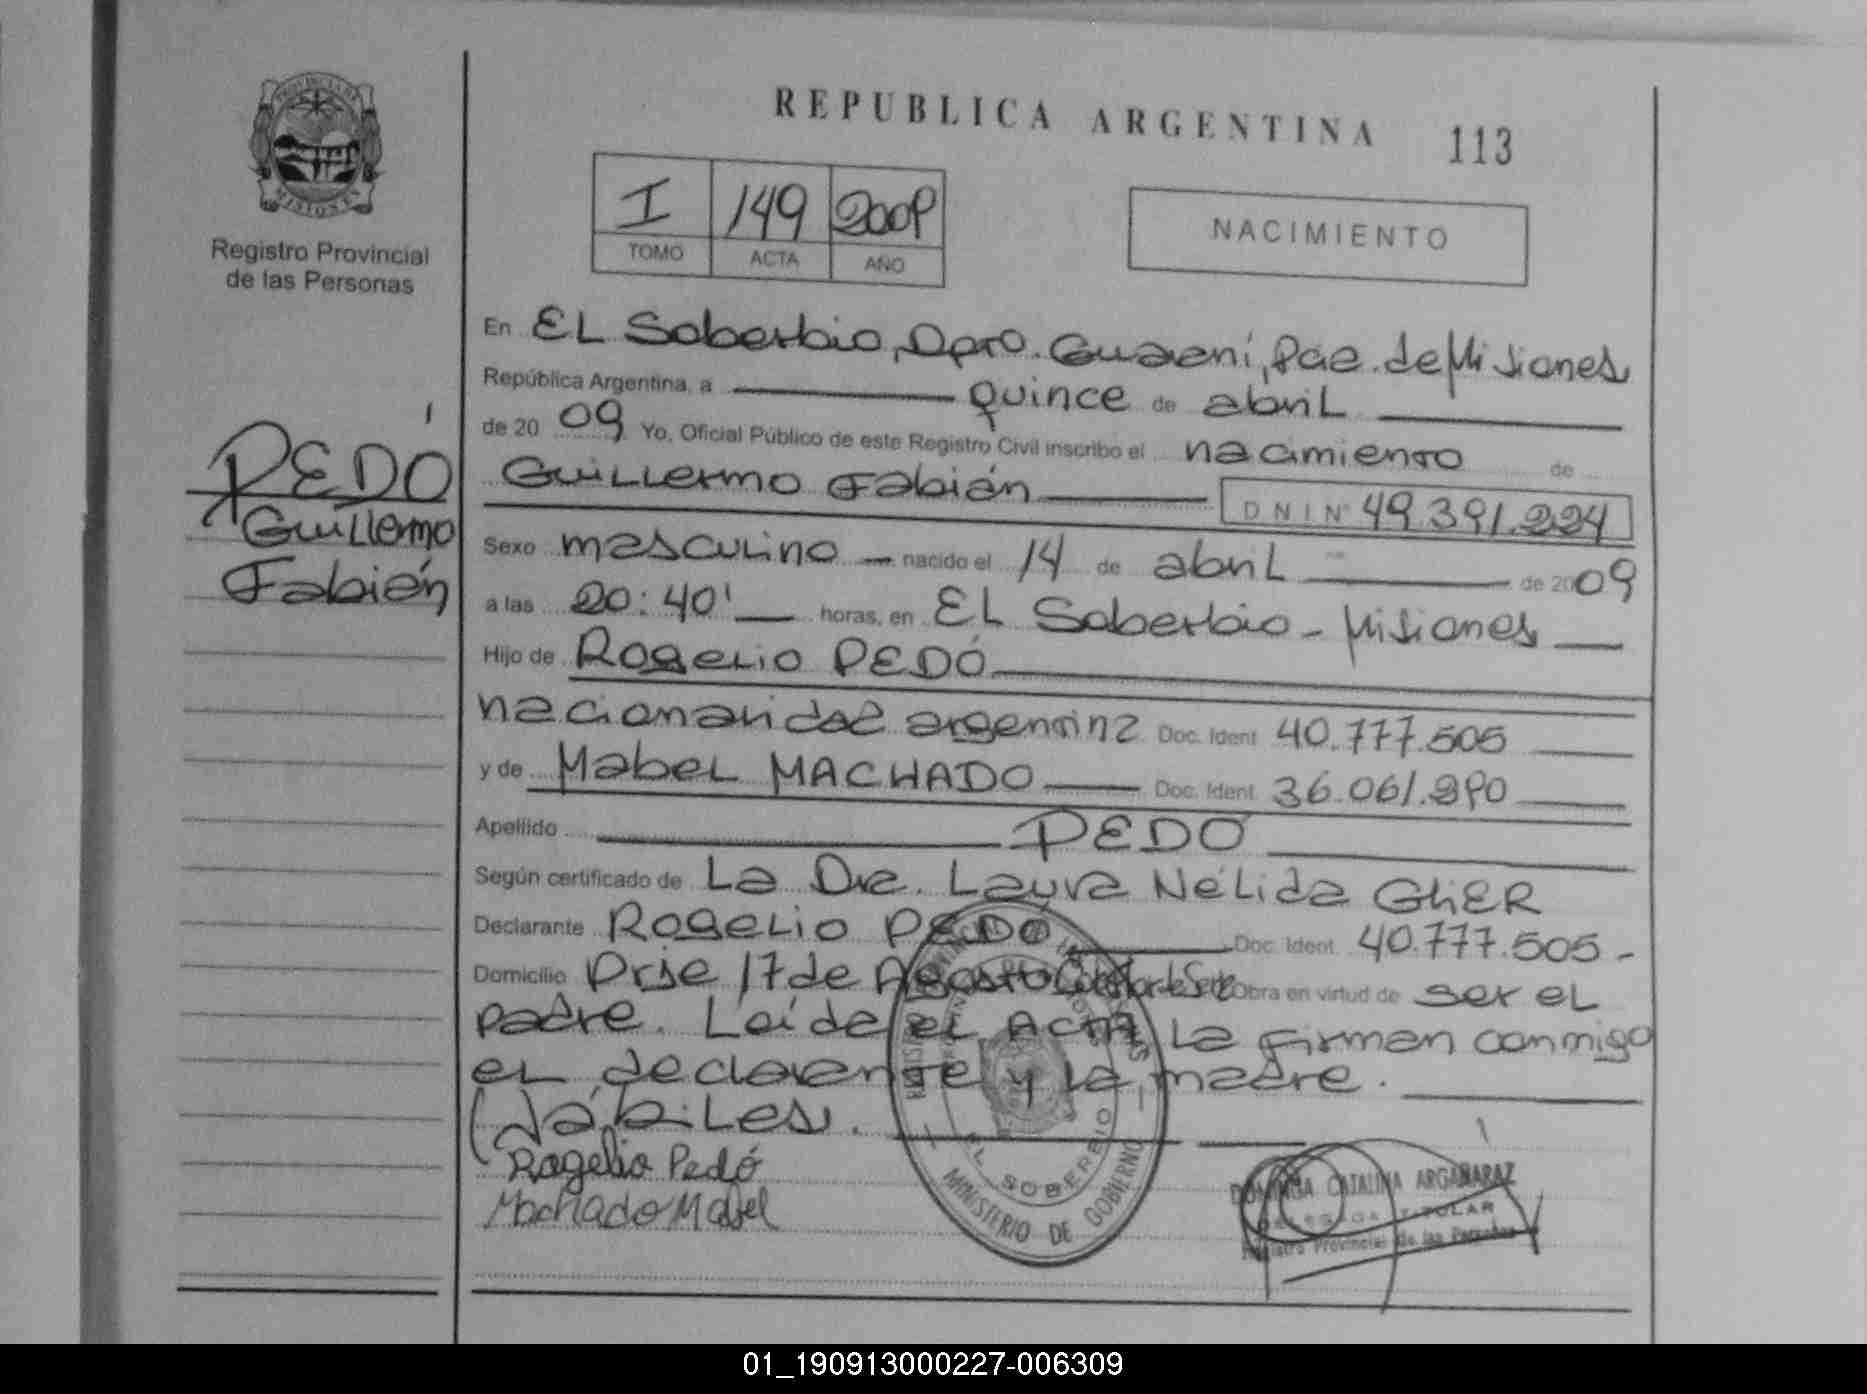 REPUBLICA ARGENTINA 113
PROVINCIA DE
MISIONES
Registro Provincial
de las Personas
I 149 2009
TOMO ACTA AÑO
NACIMIENTO
PEDÓ
Guillermo
Fabián
En EL Soberbio, Dpto. Guaraní, Pcia. de Misiones
República Argentina, a quince de abril
de 2009 Yo, Oficial Público de este Registro Civil inscribo el nacimiento de
Guillermo Fabián DNI Nº 49.391.224
Sexo masculino nacido el 14 de abril de 2009
a las 20:40' horas, en EL Soberbio - Misiones
Hijo de Rogelio PEDÓ
nacionalidad argentina Doc. Ident 40.777.505
y de Mabel MACHADO Doc. Ident. 36.061.290
Apellido PEDÓ
Según certificado de La Dra. Laura Nélida GHER
Declarante Rogelio PEDÓ Doc. Ident. 40.777.505 -
Domicilio Prje 17 de Agosto Obra en virtud de ser el
padre. Leída el Acta La firman conmigo
el declarante y la madre.
Rogelio Pedó
Machado Mabel
EL SOBERBIO
MINISTERIO DE GOBIERNO
DOMINGA CATALINA ARGAÑARAZ
DELEGADA TITULAR
Registro Provincial de las Personas
01_190913000227-006309